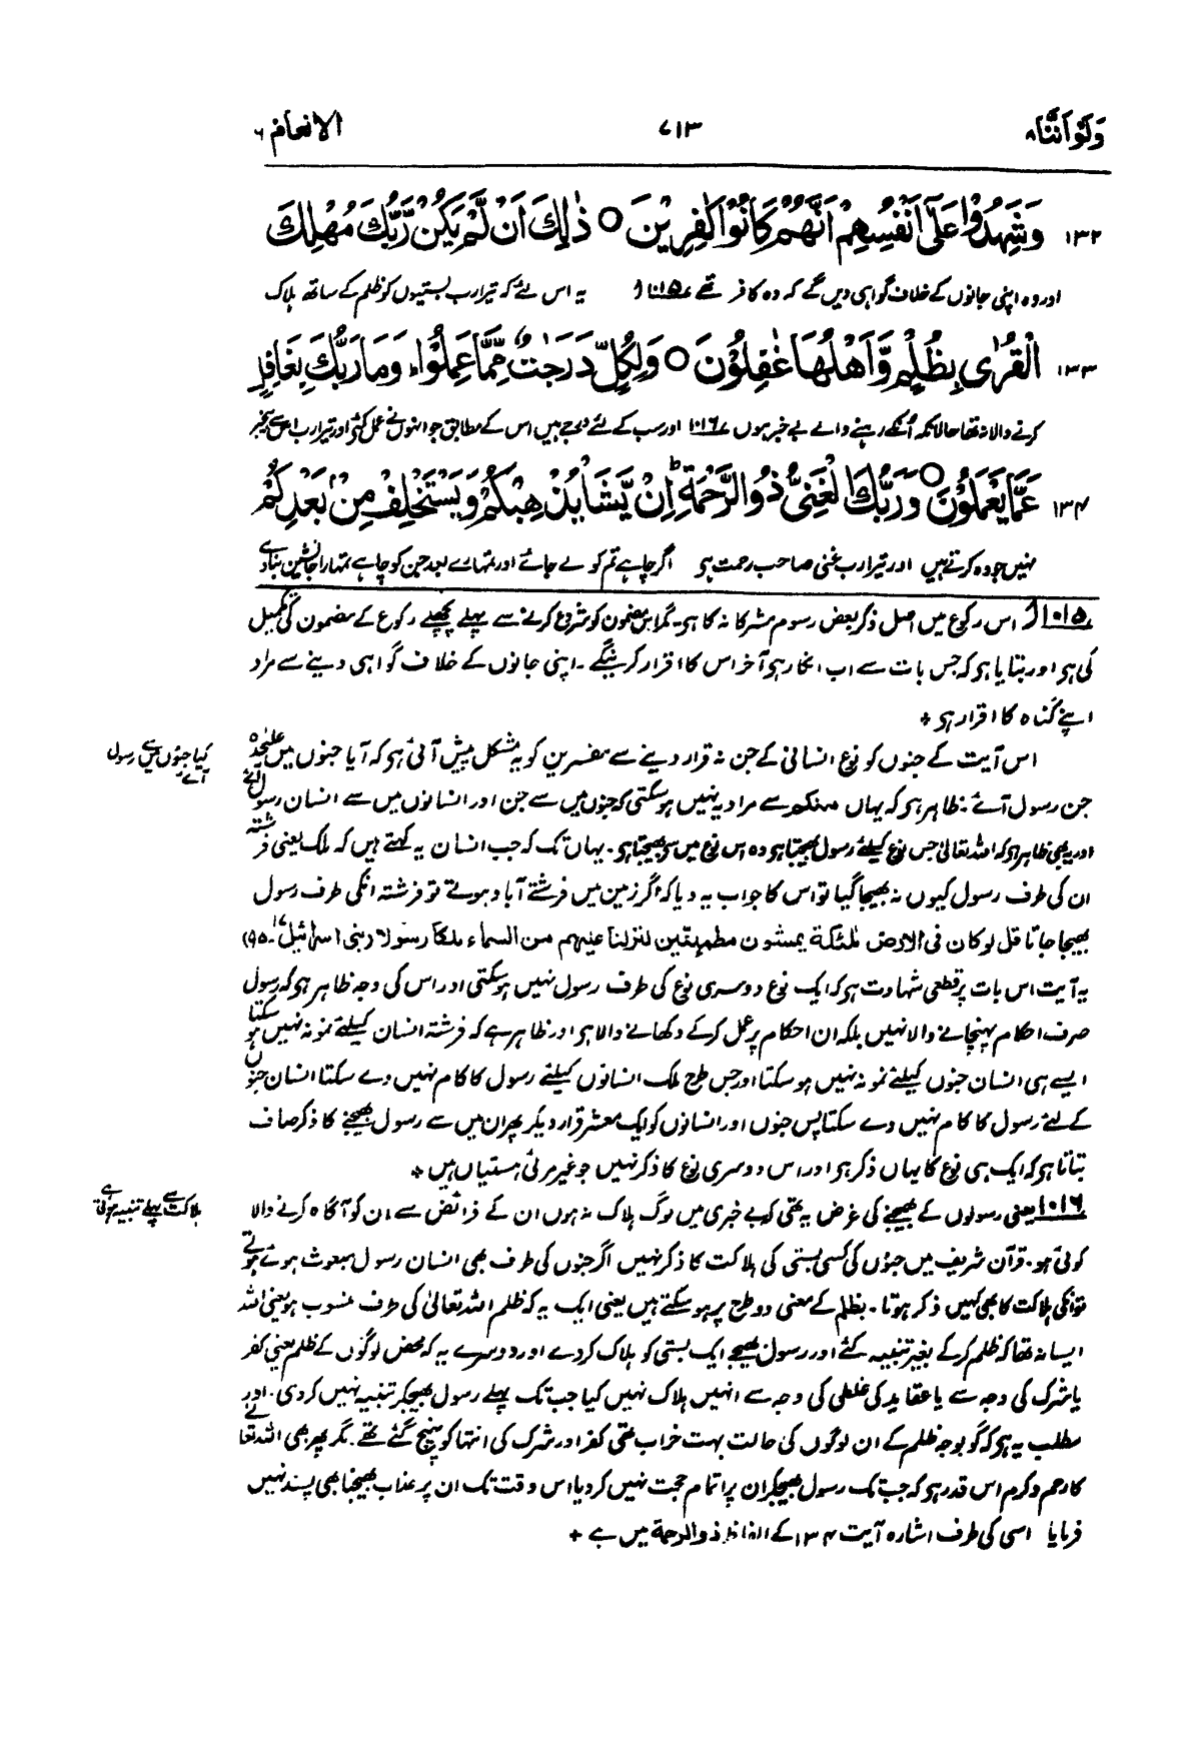 وَلَوْ اَنَّنَا ۸
۷۱۳
الانعام ۶
۱۳۲ وَشَهِدُوْا عَلٰٓى اَنْفُسِهِمْ اَنَّهُمْ كَانُوْا كٰفِرِيْنَ ○ ذٰلِكَ اَنْ لَّمْ يَكُنْ رَّبُّكَ مُهْلِكَ
اور وہ اپنی جانوں کے خلاف گواہی دیں گے کہ وہ کافر تھے ۱۰۱۵ یہ اس لئے کہ تیرا رب بستیوں کو ظلم کے ساتھ ہلاک
۱۳۳ الْقُرٰى بِظُلْمٍ وَّاَهْلُهَا غٰفِلُوْنَ ○ وَلِكُلٍّ دَرَجٰتٌ مِّمَّا عَمِلُوْا ۚ وَمَا رَبُّكَ بِغَافِلٍ
کرنے والا نہ تھا حالانکہ اُنکے رہنے والے بے خبر ہوں ۱۰۱۶ اور سب کے لئے درجے ہیں اس کے مطابق جو انہوں نے عمل کئے اور تیرا رب اس سے بیخبر
۱۳۴ عَمَّا يَعْمَلُوْنَ ○ وَرَبُّكَ الْغَنِىُّ ذُو الرَّحْمَةِ ۭ اِنْ يَّشَاْ يُذْهِبْكُمْ وَيَسْتَخْلِفْ مِنْۢ بَعْدِكُمْ
نہیں جو وہ کرتے ہیں اور تیرا رب غنی صاحب رحمت ہی اگر چاہے تم کو لے جائے اور تمہارے بعد جن کو چاہے تمہارا جانشین بنا دے
۱۰۱۵ اس رکوع میں اصل ذکر بعض رسوم مشرکانہ کا ہی۔ مگر اس مضمون کو شروع کرنے سے پہلے پچھلے رکوع کے مضمون کی تکمیل
کی ہی اور بتایا ہی کہ جس بات سے اب انکار ہی آخر اس کا اقرار کرینگے۔ اپنی جانوں کے خلاف گواہی دینے سے مراد
اپنے گناہ کا اقرار ہی +
کیا جنوں میں سے رسول آئے
اس آیت کے جنوں کو نوع انسانی کے جن نہ قرار دینے سے مفسرین کو یہ مشکل پیش آئی ہی کہ آیا جنوں میں علیحدہ
جن رسول آئے۔ ظاہر ہی کہ یہاں منکم سے مراد یہ نہیں ہو سکتی کہ جنوں میں سے جن اور انسانوں میں سے انسان رسول آئے
اور یہ بھی ظاہر ہی کہ اللہ تعالیٰ جس نوع کیلئے رسول بھیجتا ہی وہ اس نوع میں سے بھیجتا ہی۔ یہاں تک کہ جب انسان یہ کہتے ہیں کہ ملک یعنی فرشتہ
ان کی طرف رسول کیوں نہ بھیجا گیا تو اس کا جواب یہ دیا کہ اگر زمین میں فرشتے آباد ہوتے تو فرشتہ انکی طرف رسول
بھیجا جاتا قل لو کان فی الارض ملٰئکة یمشون مطمئنین لنزلنا علیهم من السماء ملکا رسولا (بنی اسرائیل ۱۷۔ ۹۵)
یہ آیت اس بات پر قطعی شہادت ہی کہ ایک نوع دوسری نوع کی طرف رسول نہیں ہو سکتی اور اس کی وجہ ظاہر ہی کہ رسول
صرف احکام پہنچانے والا نہیں بلکہ ان احکام پر عمل کرکے دکھانے والا ہی اور ظاہر ہے کہ فرشتہ انسان کیلئے نمونہ نہیں ہو سکتا
ایسے ہی انسان جنوں کیلئے نمونہ نہیں ہو سکتا اور جس طرح ملک انسانوں کیلئے رسول کا کام نہیں دے سکتا انسان جنوں
کے لئے رسول کا کام نہیں دے سکتا پس جنوں اور انسانوں کو ایک معشر قرار دیکر پھر ان میں سے رسول بھیجنے کا ذکر صاف
بتاتا ہی کہ ایک ہی نوع کا یہاں ذکر ہی اور اس دوسری نوع کا ذکر نہیں جو غیر مرئی ہستیاں ہیں +
ہلاکت سے پہلے تنبیہ ہوتی ہے
۱۰۱۶ یعنی رسولوں کے بھیجنے کی غرض یہ تھی کہ بے خبری میں لوگ ہلاک نہ ہوں ان کے فرائض سے ان کو آگاہ کرنے والا
کوئی ہو۔ قرآن شریف میں جنوں کی کسی بستی کی ہلاکت کا ذکر نہیں اگر جنوں کی طرف بھی انسان رسول مبعوث ہوئے ہوتے
تو انکی ہلاکت کا بھی کہیں ذکر ہوتا۔ بظلم کے معنی دو طرح پر ہو سکتے ہیں یعنی ایک یہ کہ ظلم اللہ تعالیٰ کی طرف منسوب ہو یعنی اللہ
ایسا نہ تھا کہ ظلم کرکے بغیر تنبیہ کئے اور رسول بھیجے ایک بستی کو ہلاک کر دے اور دوسرے یہ کہ محض لوگوں کے ظلم یعنی کفر
یا شرک کی وجہ سے یا عقاید کی غلطی کی وجہ سے انہیں ہلاک نہیں کیا جب تک پہلے رسول بھیجکر تنبیہ نہیں کر دی۔ اور
مطلب یہ ہی کہ گو بوجہ ظلم کے ان لوگوں کی حالت بہت خراب تھی کفر اور شرک کی انتہا کو پہنچ گئے تھے۔ مگر پھر بھی اللہ تعالیٰ
کا رحم و کرم اس قدر ہی کہ جب تک رسول بھیجکر ان پر اتمام حجت نہیں کر دیا اس وقت تک ان پر عذاب بھیجنا بھی پسند نہیں
فرمایا اسی کی طرف اشارہ آیت ۱۳۴ کے الفاظ ذوالرحمة میں ہے +